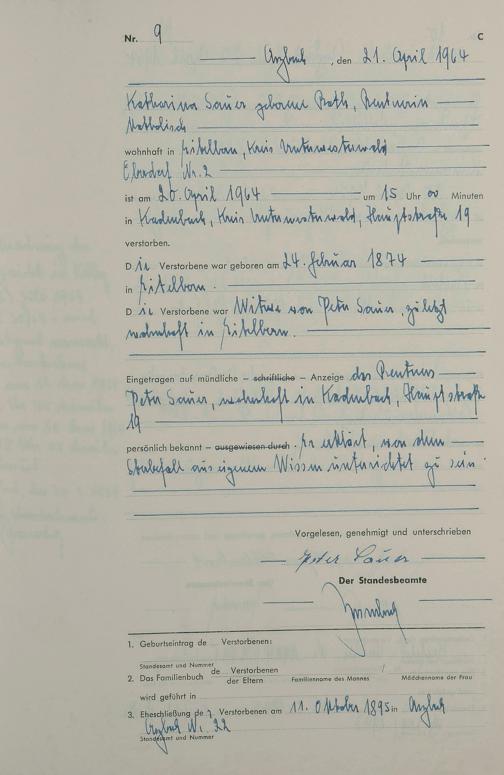 Nr. 9 C
Arzbach, den 21. April 1964
Katharina Sauer geborene Roth, Rentnerin
katholisch
wohnhaft in Eitelborn, Kreis Unterwesterwald
Nr. 2
ist am 20. April 1964 um 15 Uhr 00 Minuten
in Kadenbach, Kreis Unterwesterwald, Hauptstraße 19
verstorben.
Die Verstorbene war geboren am 24. Februar 1874
in Eitelborn.
Die Verstorbene war Witwe von Peter Sauer, zuletzt
wohnhaft in Eitelborn.
Eingetragen auf mündliche – schriftliche – Anzeige des Rentners
Peter Sauer, wohnhaft in Kadenbach, Hauptstraße
19
persönlich bekannt – ausgewiesen durch. Er erklärt, von dem
Sterbefall aus eigenem Wissen unterrichtet zu sein.
Vorgelesen, genehmigt und unterschrieben
Peter Sauer
Der Standesbeamte
1. Geburtseintrag de Verstorbenen:
Standesamt und Nummer
2. Das Familienbuch de Verstorbenen der Eltern
Familienname des Mannes Mädchenname der Frau
wird geführt in
3. Eheschließung der Verstorbenen am 11. Oktober 1895 in Arzbach
Arzbach Nr. 22
Standesamt und Nummer